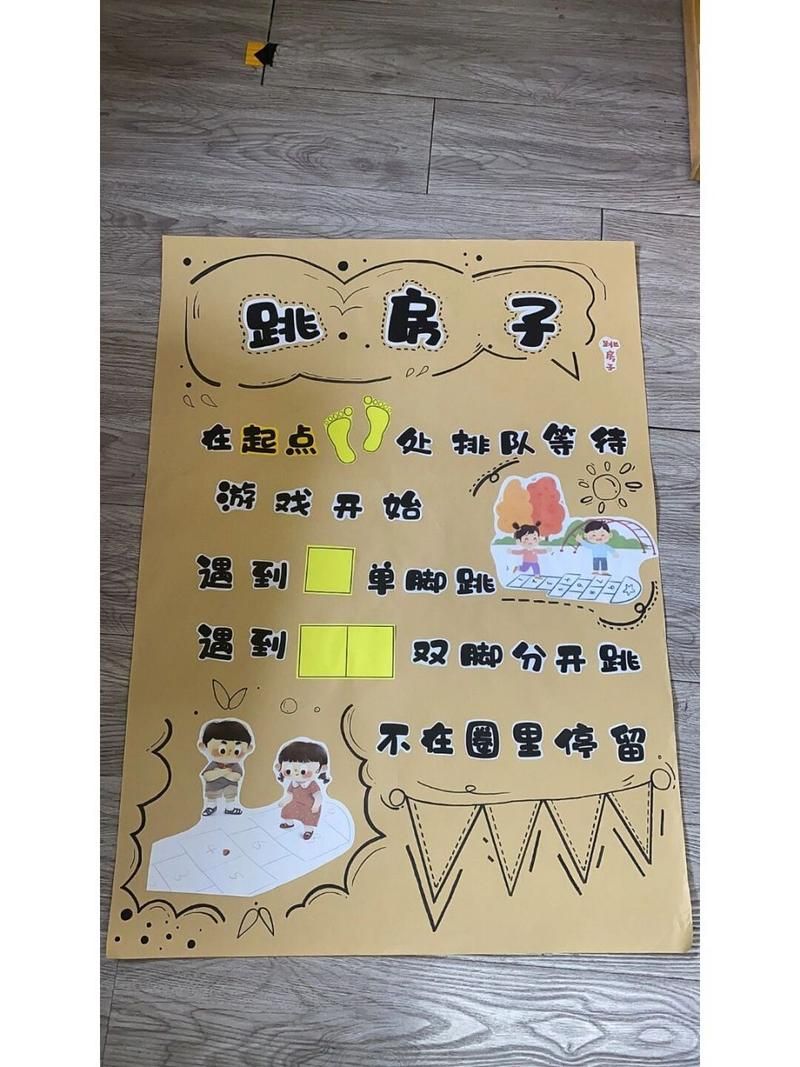 跳房子
跳房子
在起点处排队等待
游戏开始
遇到单脚跳
遇到双脚分开跳
不在圈里停留